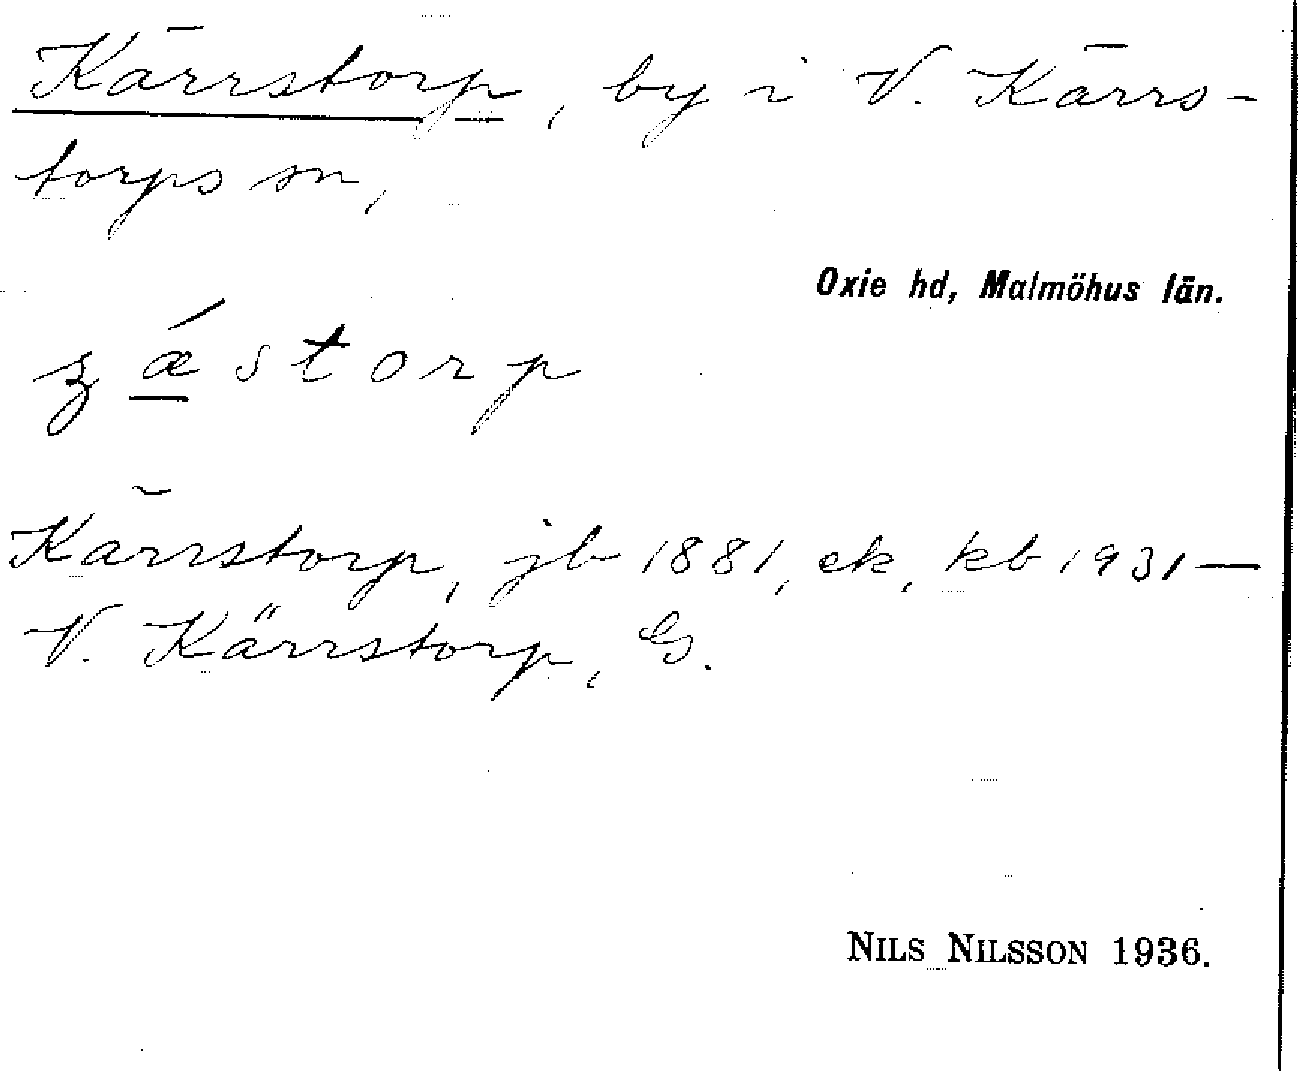 Kärrstorp, by i V. Kärrs-
torps sn,
Oxie hd, Malmöhus län.
ʒǽstorp
Kärrstorp, jb 1881, ek, kb 1931—
V. Kärrstorp, G.
NILS NILSSON 1936.